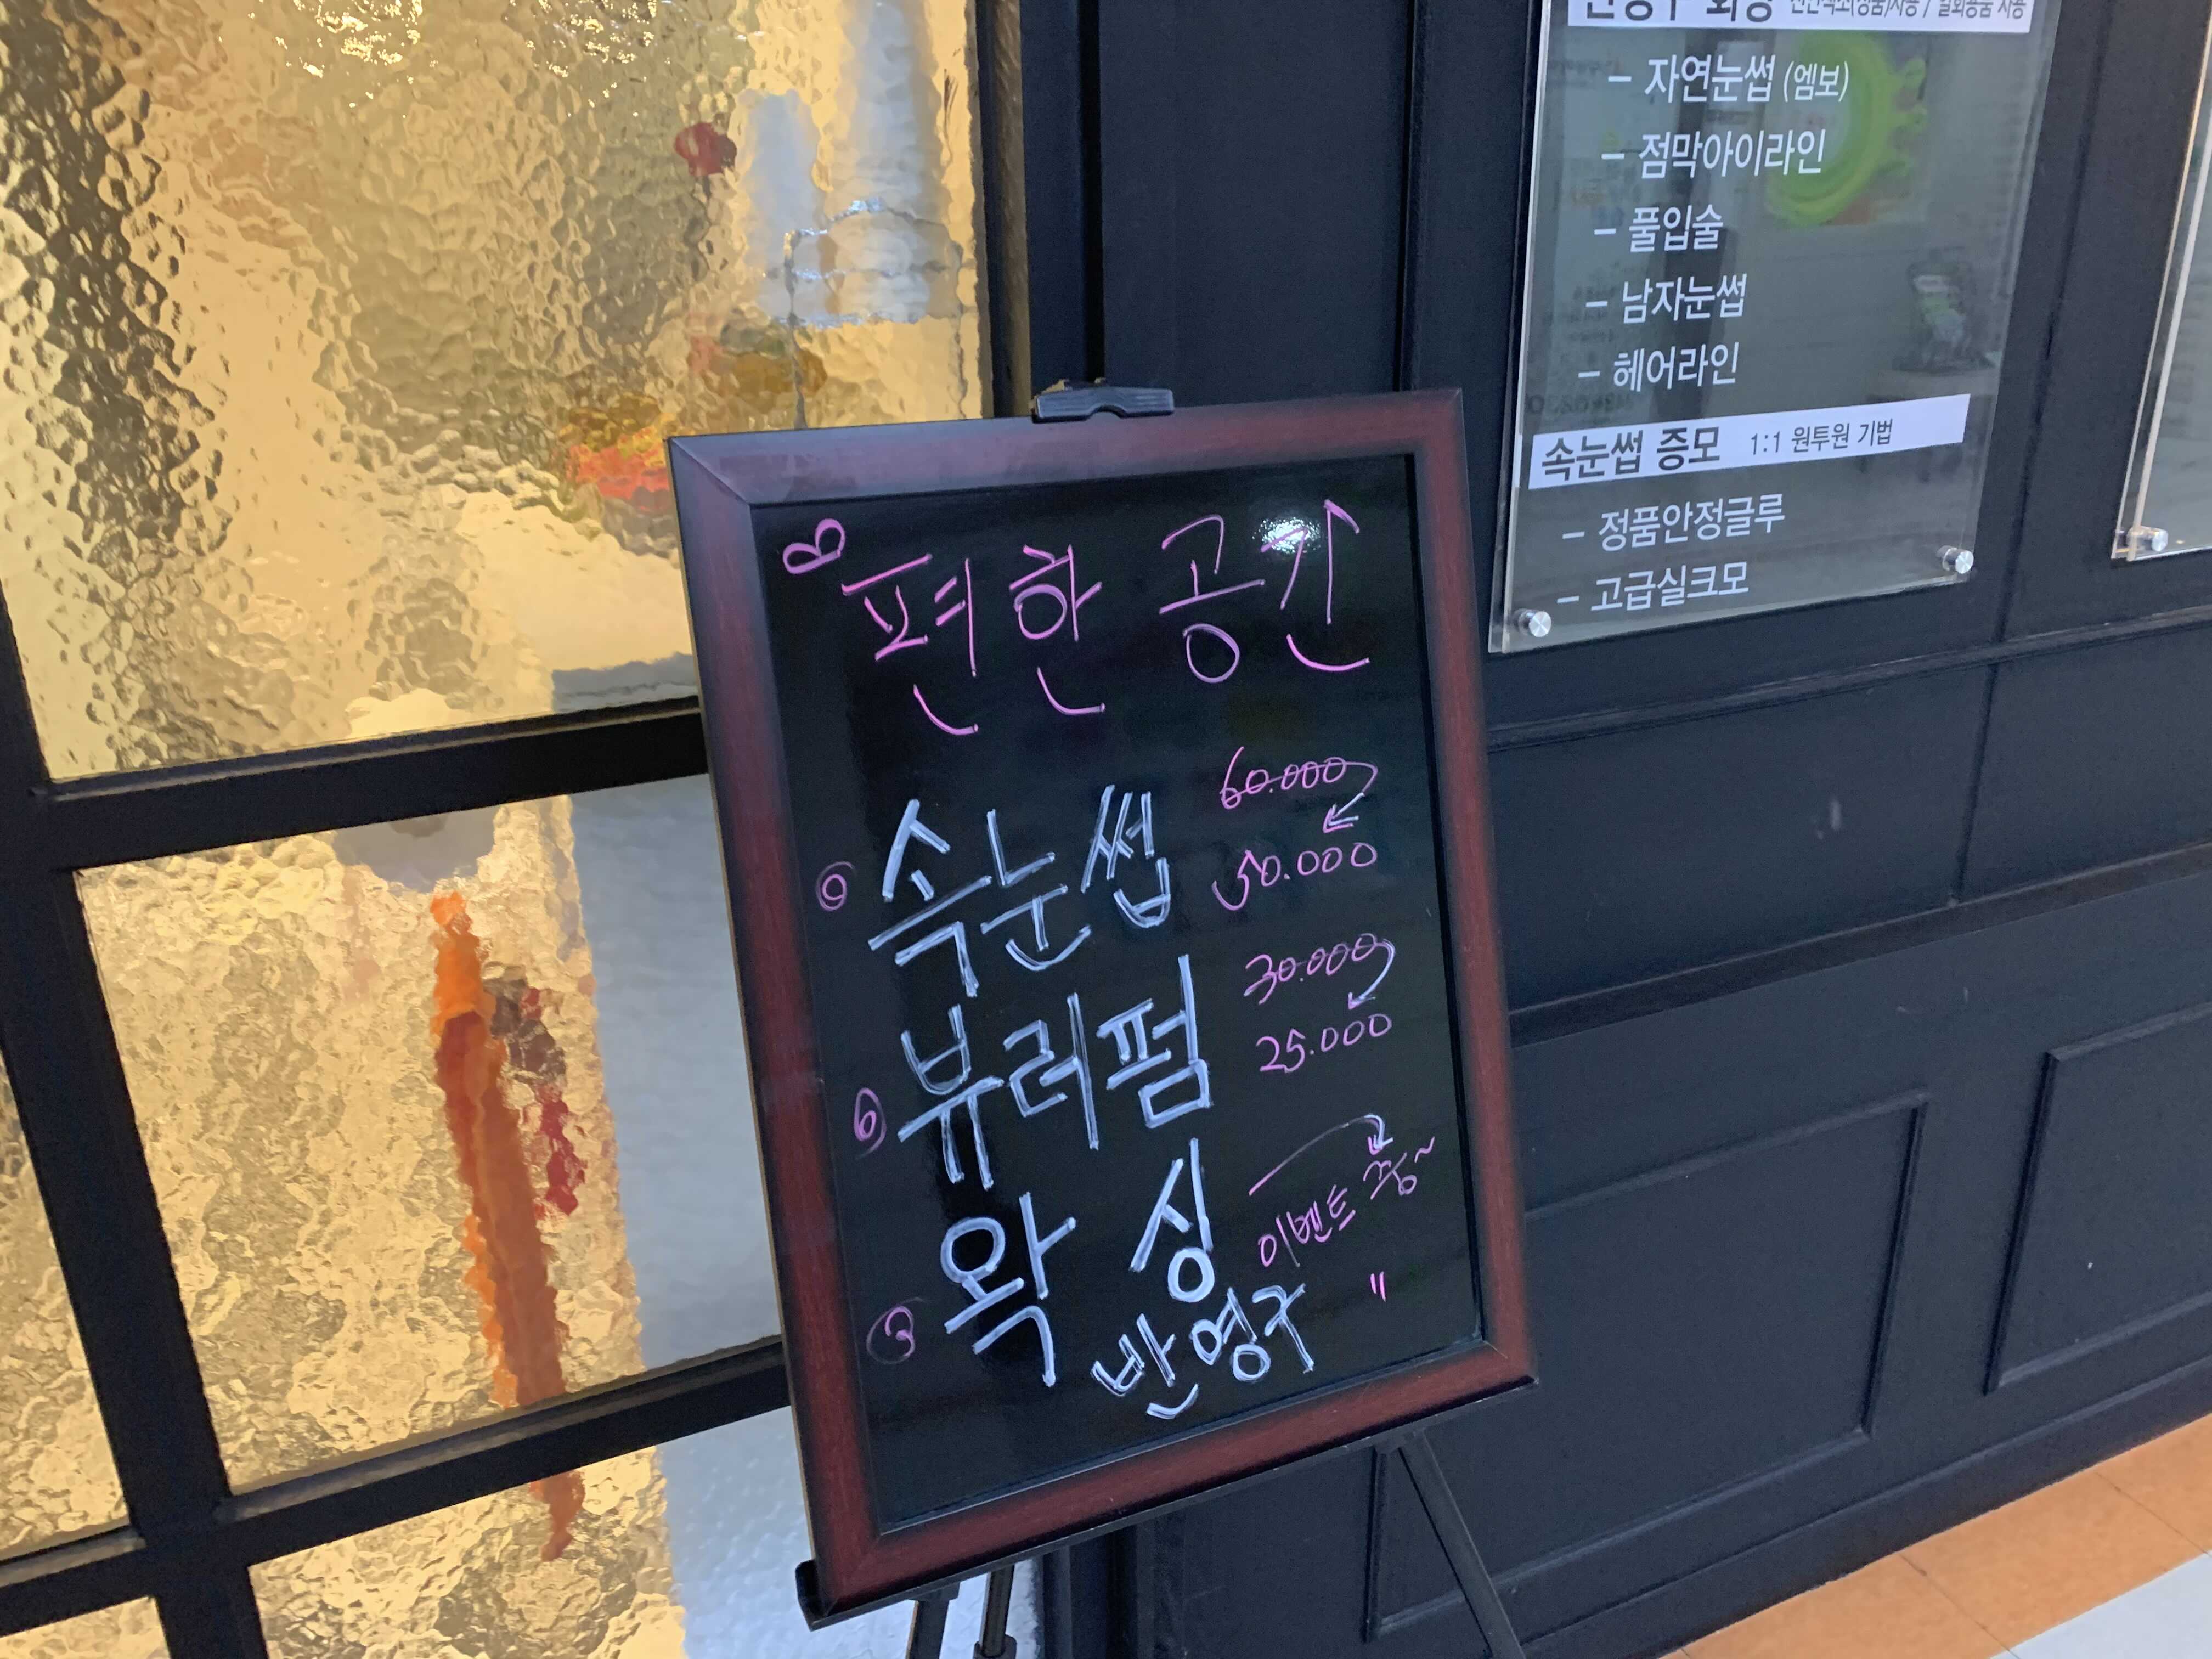 편한 공간
속눈썹 60.000
50.000
뷰러펌 30.000
25.000
왁싱 이벤트 중~
반영구 "
반영구 화장
- 자연눈썹 (엠보)
- 점막아이라인
- 풀입술
- 남자눈썹
- 헤어라인
속눈썹 증모 1:1 원투원 기법
- 정품안정글루
- 고급실크모